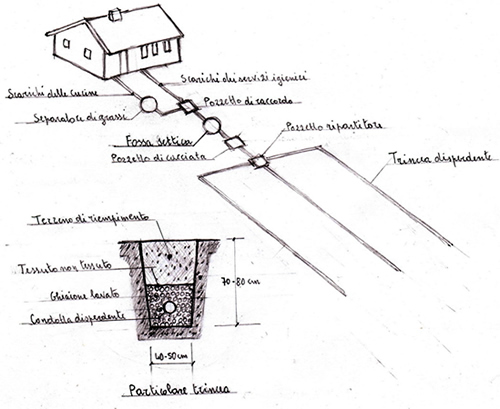 Scarichi dei servizi igienici
Scarichi delle cucine
Pozzetto di raccordo
Separatore di grassi
Fossa settica
Pozzetto ripartitore
Pozzetto di cacciata
Trincea disperdente
Terreno di riempimento
Tessuto non tessuto
70-80 cm
Ghiaione lavato
Condotta disperdente
40-50 cm
Particolare trincea